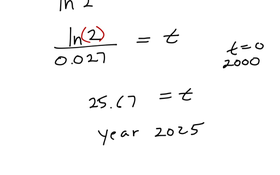 ln 2
ln(2)
0.027 = t
t=0
2000
25.67 = t
year 2025